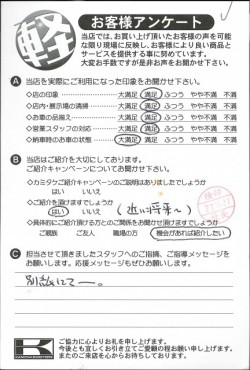 軽
お客様アンケート
当店では、お買い上げ頂いたお客様の声を可能
な限り現場に反映し、お客様により良い商品と
サービスを提供する事に努めています。
大変お手数ですが是非お声をお聞かせ下さい。
A 当店を実際にご利用になった印象をお聞かせ下さい。
◇店の印象 大満足 満足 ふつう やや不満 不満
◇店内・展示場の清掃 大満足 満足 ふつう やや不満 不満
◇お車の品揃え 大満足 満足 ふつう やや不満 不満
◇営業スタッフの対応 大満足 満足 ふつう やや不満 不満
◇納車時のお車の状態 大満足 満足 ふつう やや不満 不満
B 当店はご紹介を大切にしております。
ご紹介キャンペーンについてお聞かせ下さい。
・カミタケご紹介キャンペーンのご説明はありましたでしょうか
はい いいえ
・ご紹介を頂けますでしょうか
はい いいえ (近い将来〜)
・具体的にご紹介頂ける方とのご関係をお聞かせ頂けますでしょうか
ご家族 ご友人 職場の方 機会があれば紹介したい
C 担当させて頂きましたスタッフへのご指摘、ご指導メッセージを
お願いします。応援メッセージもぜひお願いします。
別紙にて―。
K
ご協力に心よりお礼を申し上げます。
今後とも宜しくお引き立てご愛顧の程お願い申し上げます。
またのご来店を心からお待ちしております。